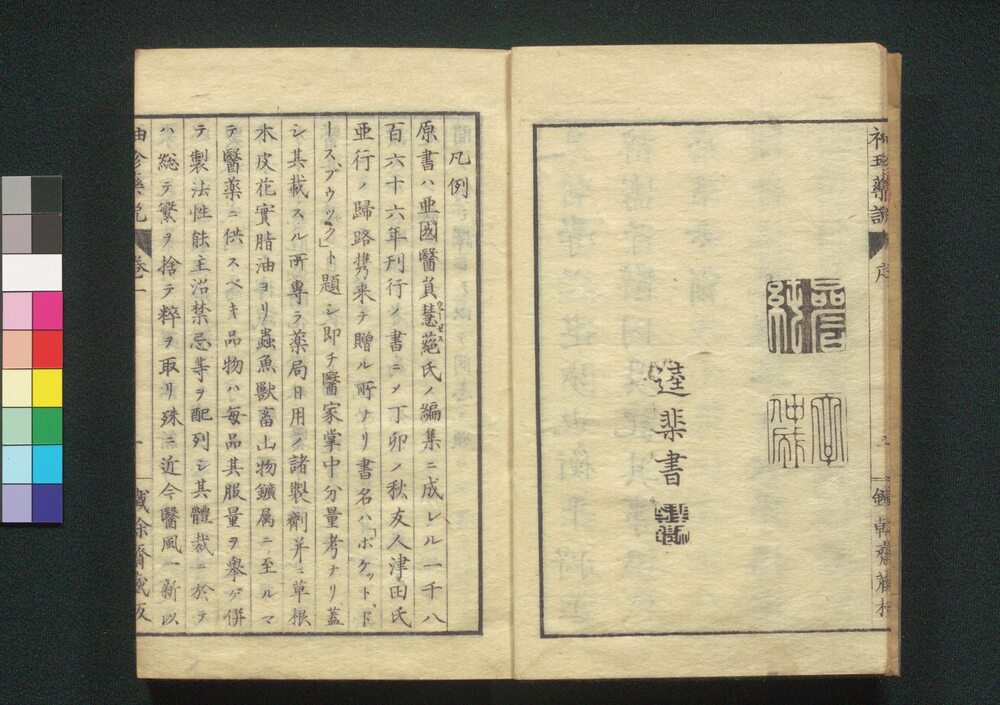 凡例
原書ハ亜國醫員慧蒓氏ノ編集ニ成レル一千八
ウーセス
百六十六年刊行ノ書ニメ丁卯ノ秋友人津田氏
亜行ノ歸路携来テ贈ル所ナリ書名ハ「ポケットド
ースブウック」ト題シ即チ醫家掌中分量考ナリ蓋
シ其載スル所專ラ薬局日用ノ諸製劑并ニ草根
木皮花實脂油ヨリ蟲魚獣畜土物鑛属ニ至ルマ
テ醫薬ニ供スベキ品物ハ每品其服量ヲ擧ゲ併
テ製法性能主治禁忌等ヲ配列シ其體裁ニ於テ
ハ総テ繁ヲ捨テ粹ヲ取リ殊ニ近今醫風一新以
卷一
一
書